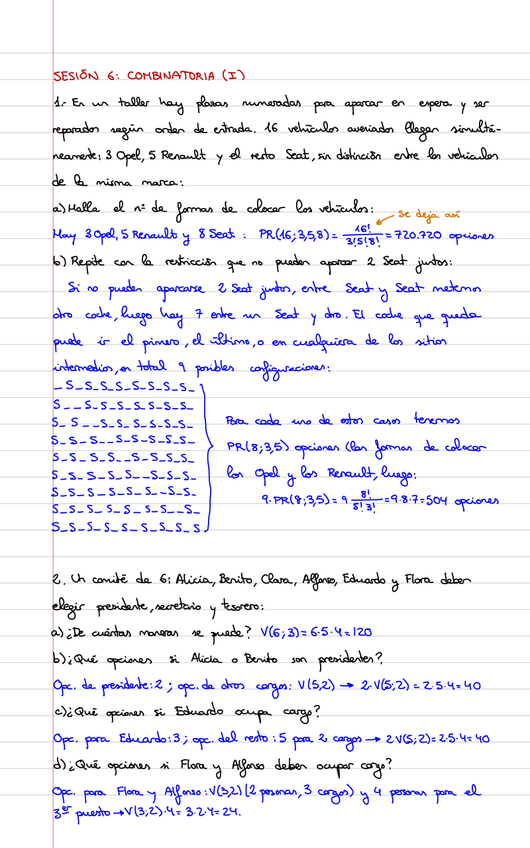 SESIÓN 6: COMBINATORIA (I)
1.- En un taller hay plazas numeradas para aparcar en espera y ser
reparados según orden de entrada. 16 vehículos averiados llegan simultá-
neamente: 3 Opel, 5 Renault y el resto Seat, sin distinción entre los vehículos
de la misma marca:
a) Halla el nº de formas de colocar los vehículos:
Se deja así
Hay 3 Opel, 5 Renault y 8 Seat: PR(16;3,5,8) = 16!/3!5!8! = 720.720 opciones
b) Repite con la restricción que no pueden aparcar 2 Seat juntos:
Si no pueden aparcarse 2 Seat juntos, entre Seat y Seat metemos
otro coche, luego hay 7 entre un Seat y otro. El coche que queda
puede ir el primero, el último, o en cualquiera de los sitios
intermedios, en total 9 posibles configuraciones:
_S_S_S_S_S_S_S_S_
S__S_S_S_S_S_S_S_
S_S__S_S_S_S_S_S_
S_S_S__S_S_S_S_S_
S_S_S_S__S_S_S_S_
S_S_S_S_S__S_S_S_
S_S_S_S_S_S__S_S_
S_S_S_S_S_S_S__S_
S_S_S_S_S_S_S_S_S
Para cada uno de estos casos tenemos
PR(8;3,5) opciones (las formas de colocar
los Opel y los Renault, luego:
9·PR(8;3,5) = 9 8!/5!3! = 9·8·7 = 504 opciones
2. Un comité de 6: Alicia, Benito, Clara, Alfonso, Eduardo y Flora deben
elegir presidente, secretario y tesorero:
a) ¿De cuántas maneras se puede? V(6;3) = 6·5·4 = 120
b) ¿Qué opciones si Alicia o Benito son presidentes?
Opc. de presidente: 2; opc. de otros cargos: V(5,2) → 2·V(5;2) = 2·5·4 = 40
c) ¿Qué opciones si Eduardo ocupa cargo?
Opc. para Eduardo: 3; opc. del resto: 5 para 2 cargos → 2V(5;2) = 2·5·4 = 40
d) ¿Qué opciones si Flora y Alfonso deben ocupar cargo?
Opc. para Flora y Alfonso: V(3,2) (2 personas, 3 cargos) y 4 personas para el
3er puesto → V(3,2)·4 = 3·2·4 = 24.